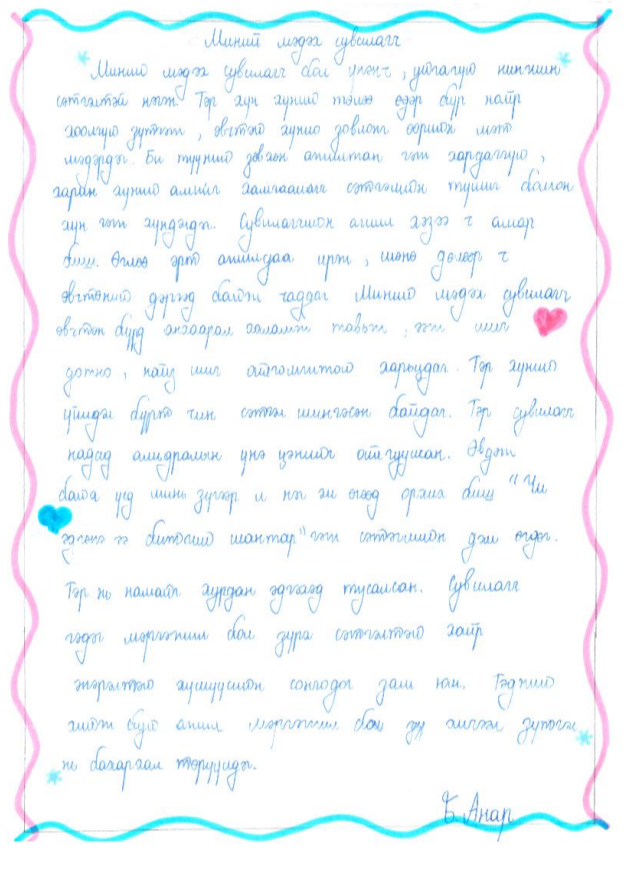 Миний мэдэх сувилагч
Миний мэдэх сувилагч бол үнэнч, уйгагүй нинжин
сэтгэлтэй нэгэн. Тэр хүн хүний төлөө өдөр бүр найр
хоолгүй зүтгэж, өвчтөнө хүний зовлонг өөрийн мэт
мэдэрдэг. Би түүнийг зөвхөн ажилтан гэж хардаггүй,
харин хүний амийг хамгаалагч сэтгэлийн түшиг болсон
хүн гэж хүндэлдэг. Сувилагчийн ажил хэзээ ч амар
биш. Өглөө эрт ажилдаа ирж, шөнө дөлөөр ч
өвчтөний дэргэд байж чаддаг Миний мэдэх сувилагч
өвчтөн бүрд анхаарал халамж тавьж, ээж шиг
дотно, найз шиг ойлгомжтой харьцдаг. Тэр хүний
үйлдэл бүрт чин сэтгэл шингэсэн байдаг. Тэр сувилагч
надад амьдралын үнэ цэнийг ойлгуулсан. Өвдөж
байга үед минь зүгээр л нэг эм өгөөд орхих биш "Чи
эдгэнэ ээ битгий шантар" гэж сэтгэлийн дэм өгдөг.
Тэр нь намайг хурдан эдгэхэд тусалсан. Сувилагч
гэдэг мэргэжил бол зүрх сэтгэлтэй хайр
энэрэлтэй хүмүүсийн сонгодог зам юм. Тэдний
хийж буй ажил мэргэжил бол зүг хичээл зүтгэл
нь бахархал төрүүлдэг.
Б. Анар